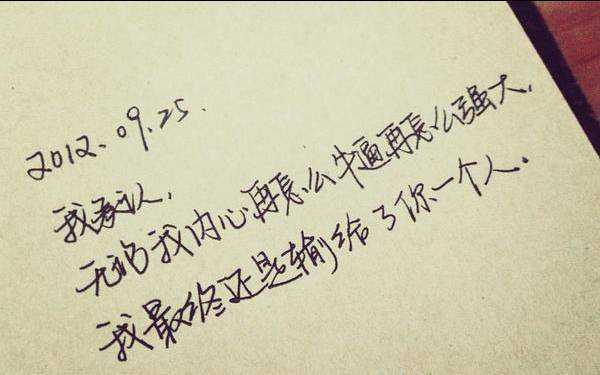 2012.09.25.
我承认,
无论我内心再怎么牛逼再怎么强大,
我最终还是输给了你一个人.